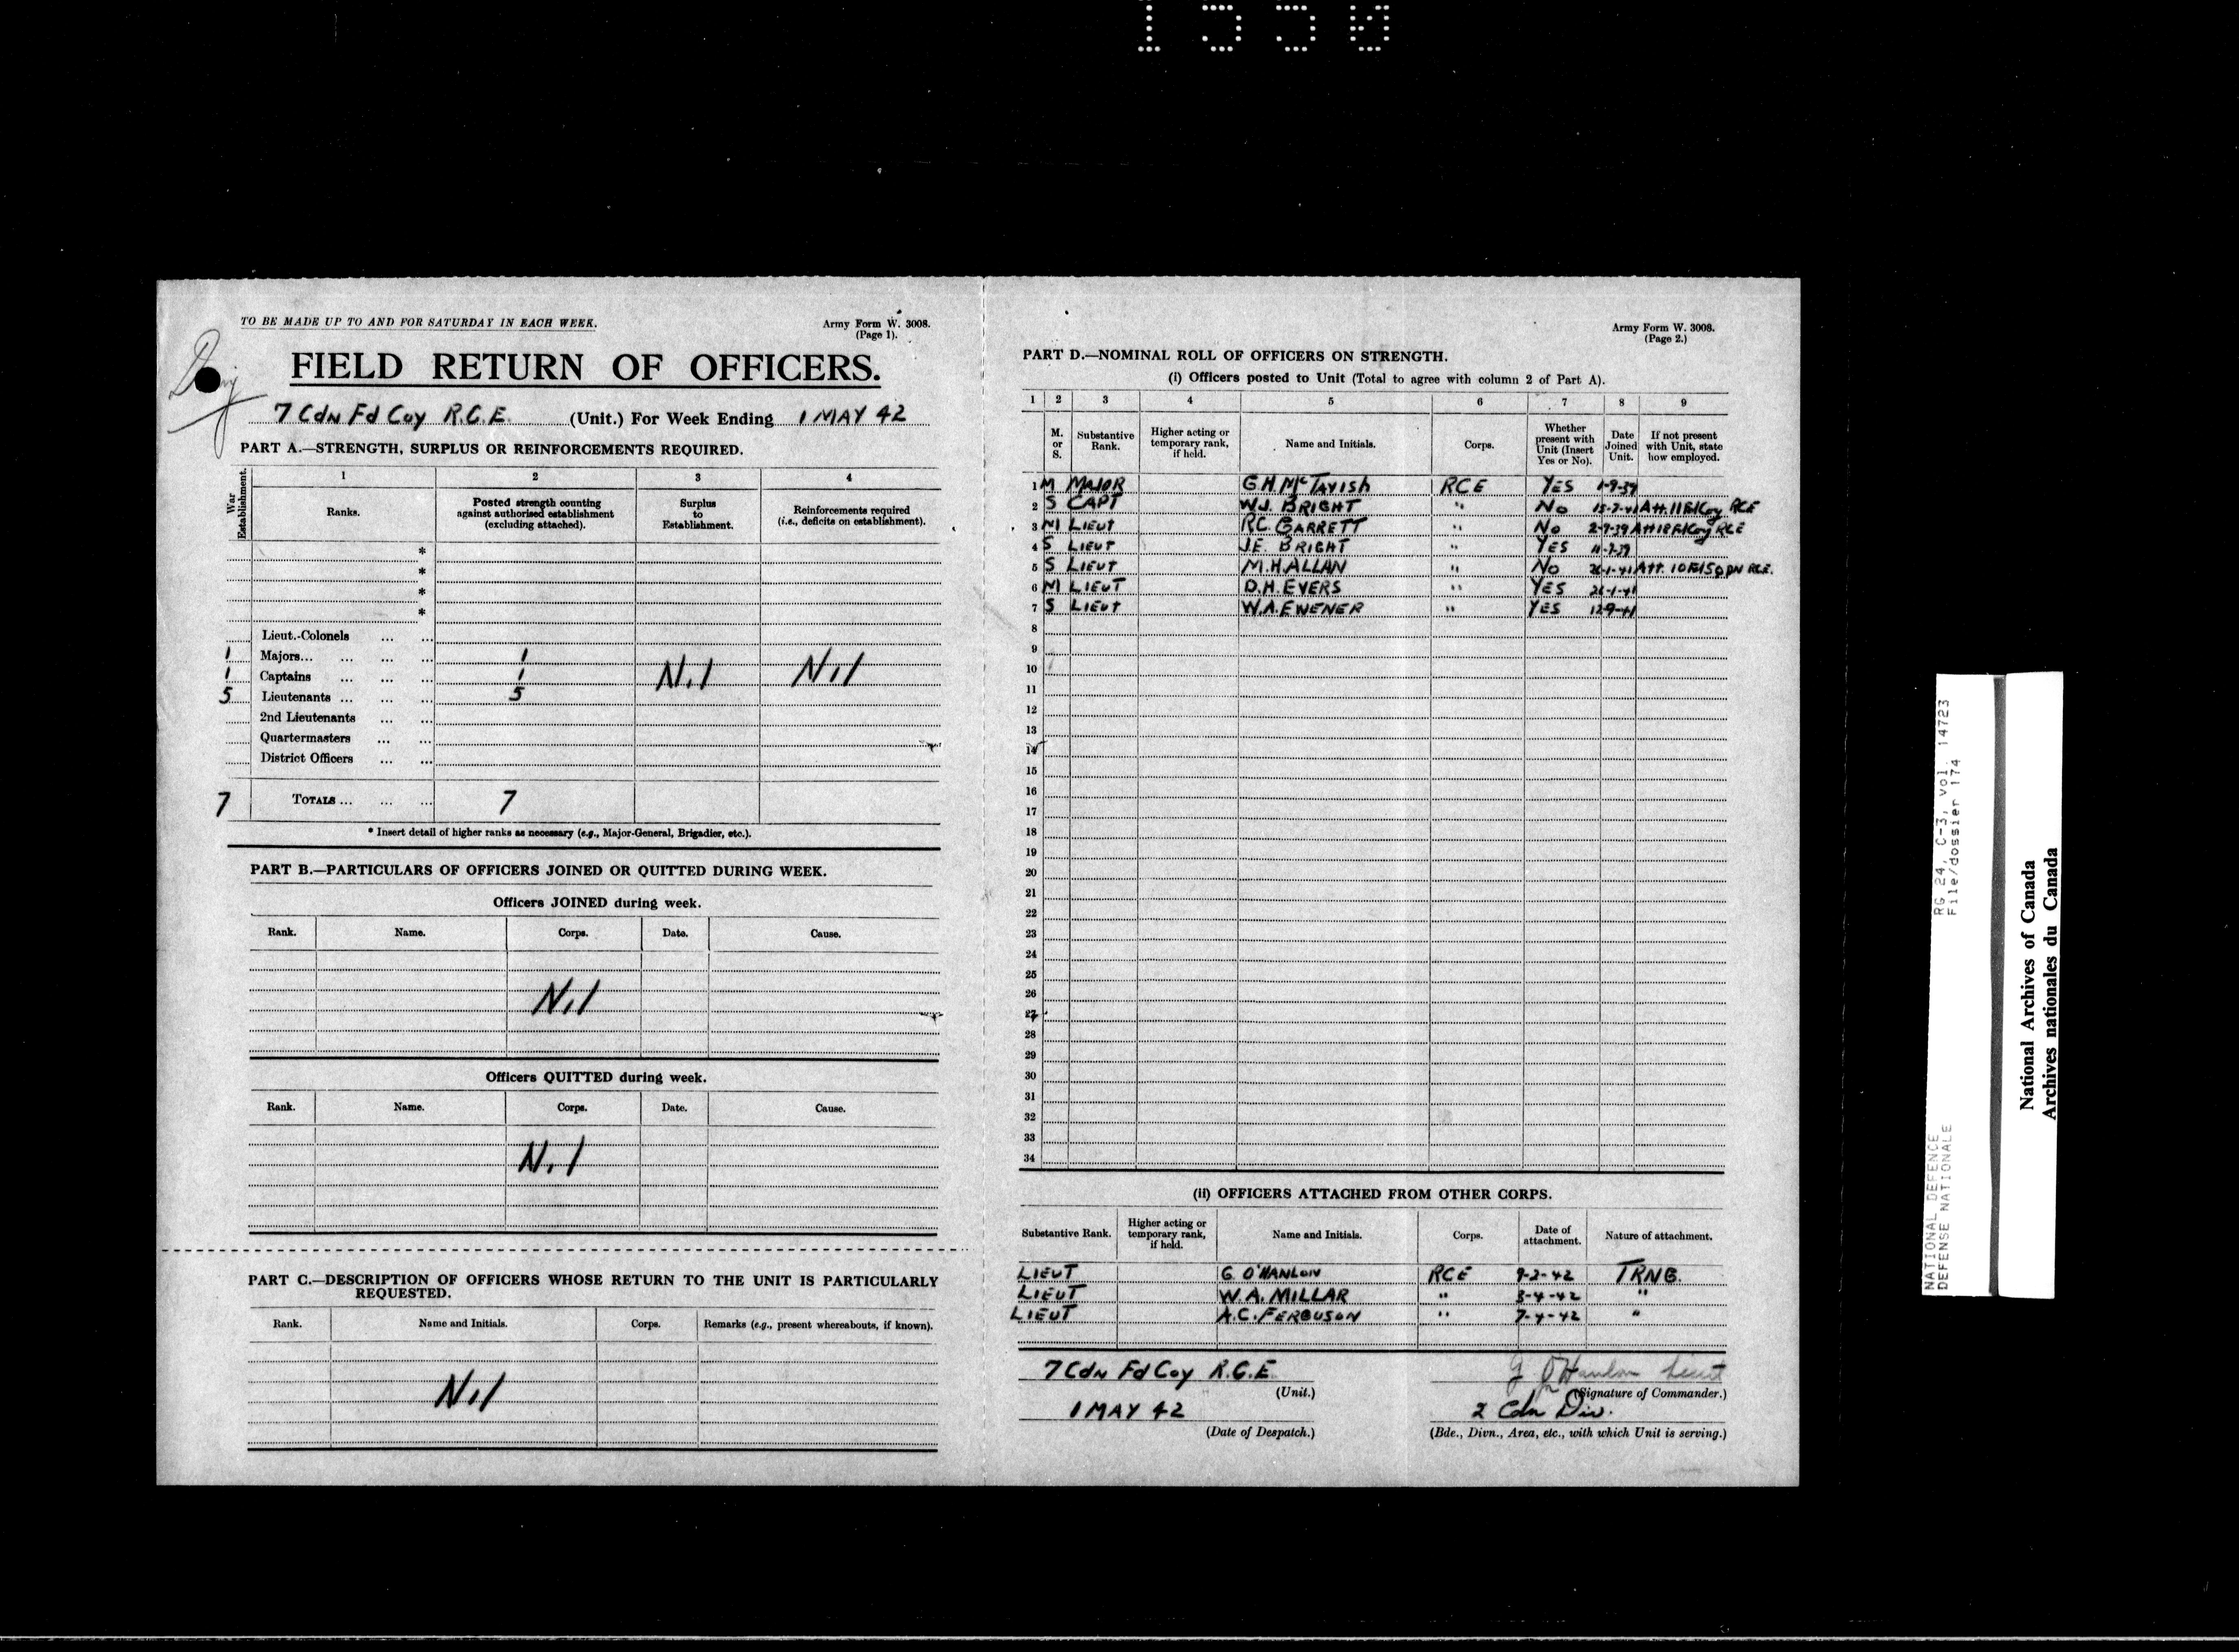 1550
TO BE MADE UP TO AND FOR SATURDAY IN EACH WEEK.
Army Form W. 3008.
(Page 1).
FIELD RETURN OF OFFICERS.
7 Cdn Fd Coy R.C.E. (Unit.) For Week Ending 1 MAY 42
PART A.—STRENGTH, SURPLUS OR REINFORCEMENTS REQUIRED.
War Establishment.
1 2 3 4
Ranks.
Posted strength counting against authorised establishment (excluding attached).
Surplus to Establishment.
Reinforcements required (i.e., deficits on establishment).
*
*
*
*
Lieut.-Colonels ... ...
1 Majors... ... ... ... 1
1 Captains ... ... ... 1 Nil Nil
5 Lieutenants ... ... ... 5
2nd Lieutenants ... ...
Quartermasters ... ...
District Officers ... ...
7 TOTALS ... ... ... 7
* Insert detail of higher ranks as necessary (e.g., Major-General, Brigadier, etc.).
PART B.—PARTICULARS OF OFFICERS JOINED OR QUITTED DURING WEEK.
Officers JOINED during week.
Rank. Name. Corps. Date. Cause.
Nil
Officers QUITTED during week.
Rank. Name. Corps. Date. Cause.
Nil
PART C.—DESCRIPTION OF OFFICERS WHOSE RETURN TO THE UNIT IS PARTICULARLY
REQUESTED.
Rank. Name and Initials. Corps. Remarks (e.g., present whereabouts, if known).
Nil
Army Form W. 3008.
(Page 2.)
PART D.—NOMINAL ROLL OF OFFICERS ON STRENGTH.
(i) Officers posted to Unit (Total to agree with column 2 of Part A).
1 2 3 4 5 6 7 8 9
M. or S.
Substantive Rank.
Higher acting or temporary rank, if held.
Name and Initials.
Corps.
Whether present with Unit (Insert Yes or No).
Date Joined Unit.
If not present with Unit, state how employed.
1 M MAJOR G.H. McTAVISH RCE YES 1-9-39
2 S CAPT W.J. BRIGHT " No Att. 11 Fd Coy RCE
3 M LIEUT R.C. GARRETT " No 2-9-39 Att Fd Coy RCE
4 S LIEUT J.E. BRIGHT " YES
5 S LIEUT M.H. ALLAN " No 26-1-41 Att. 10 RCE.
6 M LIEUT D.H. EVERS " YES 26-1-41
7 S LIEUT W.A. EWENER " YES 12-9-41
8
9
10
11
12
13
14
15
16
17
18
19
20
21
22
23
24
25
26
27
28
29
30
31
32
33
34
(ii) OFFICERS ATTACHED FROM OTHER CORPS.
Substantive Rank.
Higher acting or temporary rank, if held.
Name and Initials.
Corps.
Date of attachment.
Nature of attachment.
LIEUT G. O'HANLON RCE 9-2-42 TRNG.
LIEUT W.A. MILLAR " 3-4-42 "
LIEUT A.C. FERGUSON " 7-4-42 "
7 Cdn Fd Coy R.C.E.
(Unit.)
G O'Hanlon Lieut
(Signature of Commander.)
1 MAY 42
(Date of Despatch.)
2 Cdn Div.
(Bde., Divn., Area, etc., with which Unit is serving.)
NATIONAL DEFENCE RG 24, C-3, vol. 14723
DEFENSE NATIONALE File/dossier 174
National Archives of Canada
Archives nationales du Canada